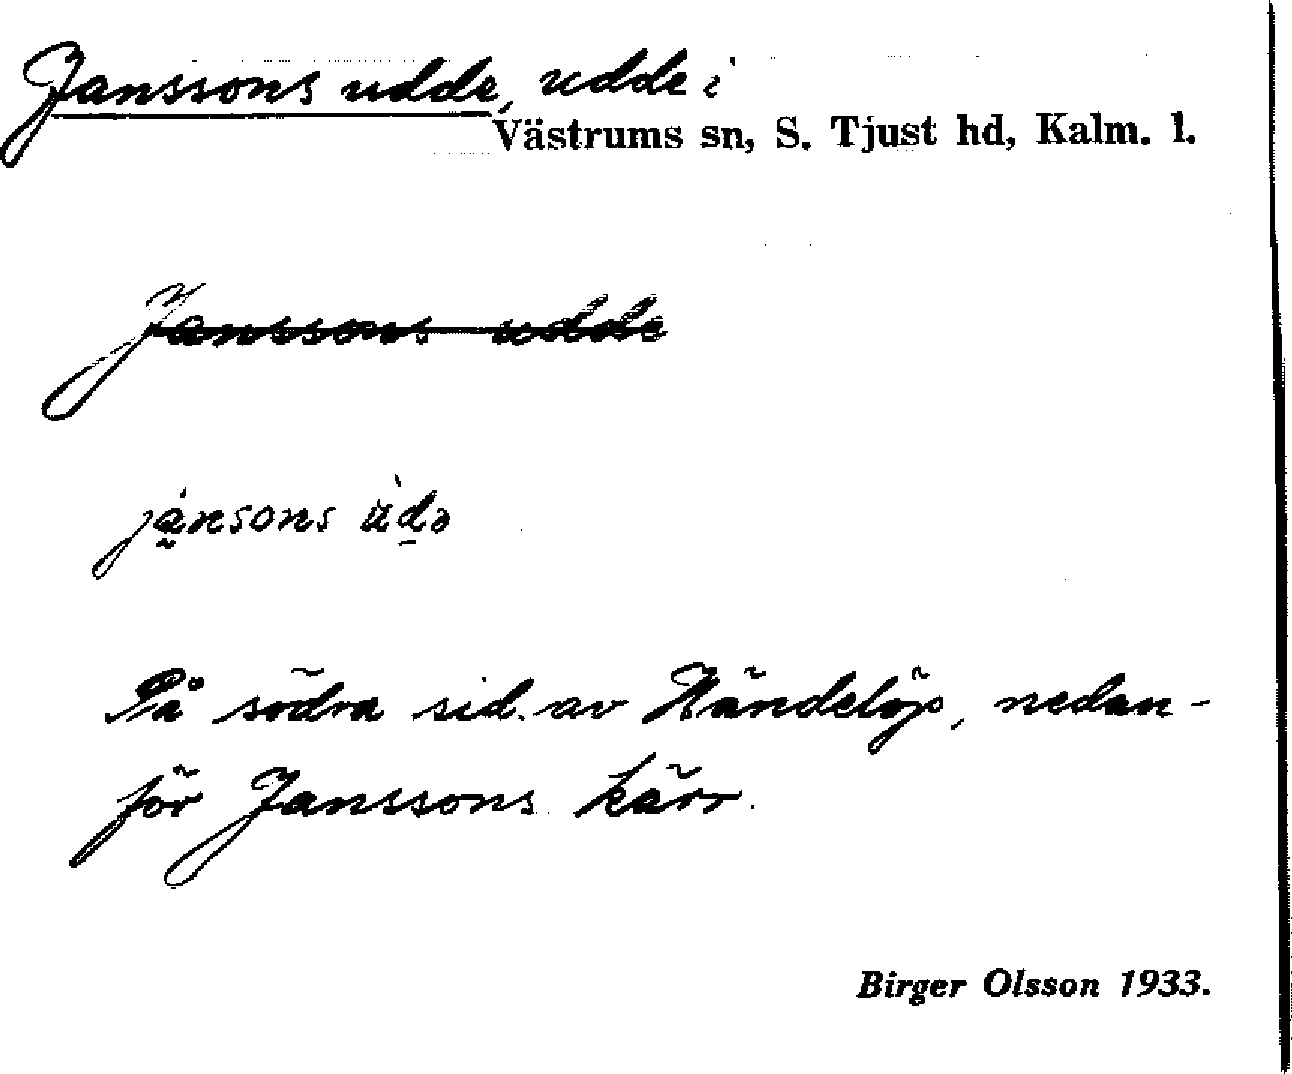 Janssons udde, udde i
Västrums sn, S. Tjust hd, Kalm. l.
Janssons udde
jànsons ùdə
På södra sid. av Händelöp, nedan-
för Janssons kärr.
Birger Olsson 1933.